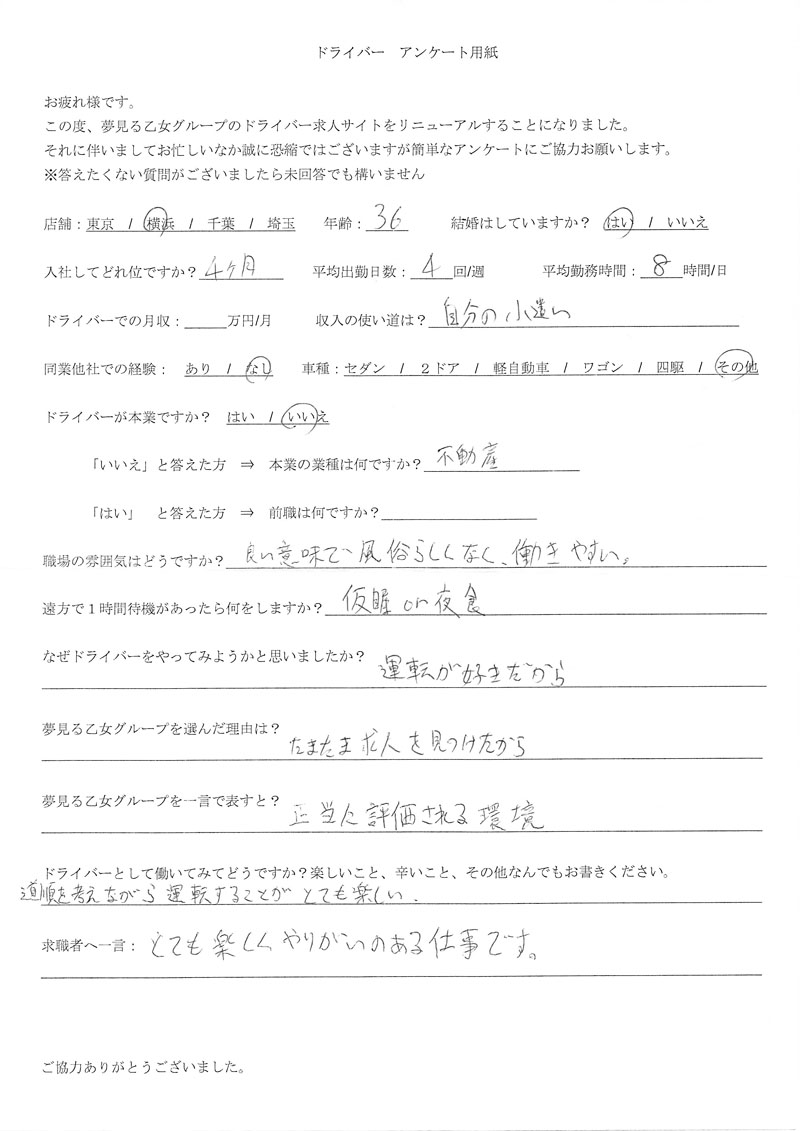 ドライバー　アンケート用紙
お疲れ様です。
この度、夢見る乙女グループのドライバー求人サイトをリニューアルすることになりました。
それに伴いましてお忙しいなか誠に恐縮ではございますが簡単なアンケートにご協力お願いします。
※答えたくない質問がございましたら未回答でも構いません
店舗：東京　/　横浜　/　千葉　/　埼玉　　年齢： 36　　結婚はしていますか？　はい　/　いいえ
入社してどれ位ですか？ 4ヶ月　　平均出勤日数： 4 回/週　　平均勤務時間： 8 時間/日
ドライバーでの月収：＿＿＿万円/月　　収入の使い道は？ 自分の小遣い
同業他社での経験：　あり　/　なし　　車種：セダン　/　２ドア　/　軽自動車　/　ワゴン　/　四駆　/　その他
ドライバーが本業ですか？　はい　/　いいえ
「いいえ」と答えた方　⇒　本業の業種は何ですか？ 不動産
「はい」　と答えた方　⇒　前職は何ですか？
職場の雰囲気はどうですか？ 良い意味で、風俗らしくなく、働きやすい。
遠方で１時間待機があったら何をしますか？ 仮眠 or 夜食
なぜドライバーをやってみようかと思いましたか？ 運転が好きだから
夢見る乙女グループを選んだ理由は？ たまたま求人を見つけたから
夢見る乙女グループを一言で表すと？ 正当に評価される環境
ドライバーとして働いてみてどうですか？楽しいこと、辛いこと、その他なんでもお書きください。
道順を考えながら運転することがとても楽しい.
求職者へ一言： とても楽しくやりがいのある仕事です。
ご協力ありがとうございました。